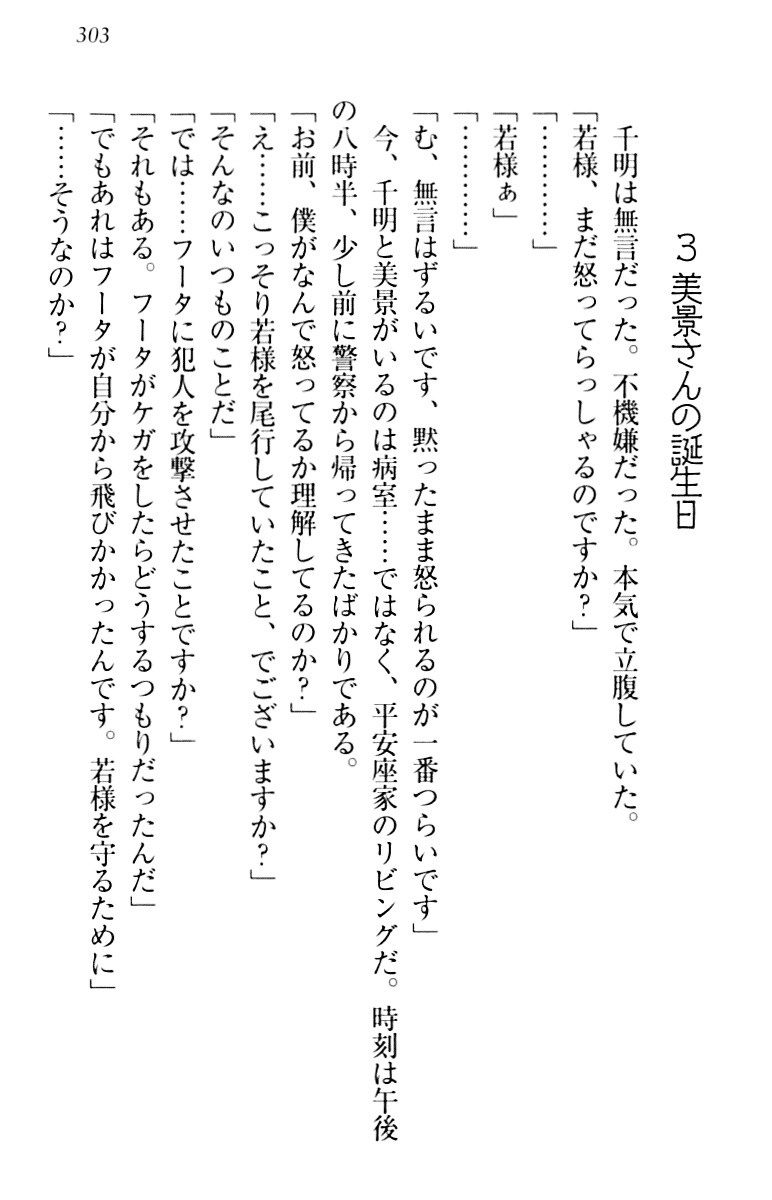 303
3 美景さんの誕生日
千明は無言だった。不機嫌だった。本気で立腹していた。
「若様、まだ怒ってらっしゃるのですか?」
「…………」
「若様ぁ」
「…………」
「む、無言はずるいです、黙ったまま怒られるのが一番つらいです」
今、千明と美景がいるのは病室……ではなく、平安座家のリビングだ。時刻は午後
の八時半、少し前に警察から帰ってきたばかりである。
「お前、僕がなんで怒ってるか理解してるのか?」
「え……こっそり若様を尾行していたこと、でございますか?」
「そんなのいつものことだ」
「では……フータに犯人を攻撃させたことですか?」
「それもある。フータがケガをしたらどうするつもりだったんだ」
「でもあれはフータが自分から飛びかかったんです。若様を守るために」
「……そうなのか?」